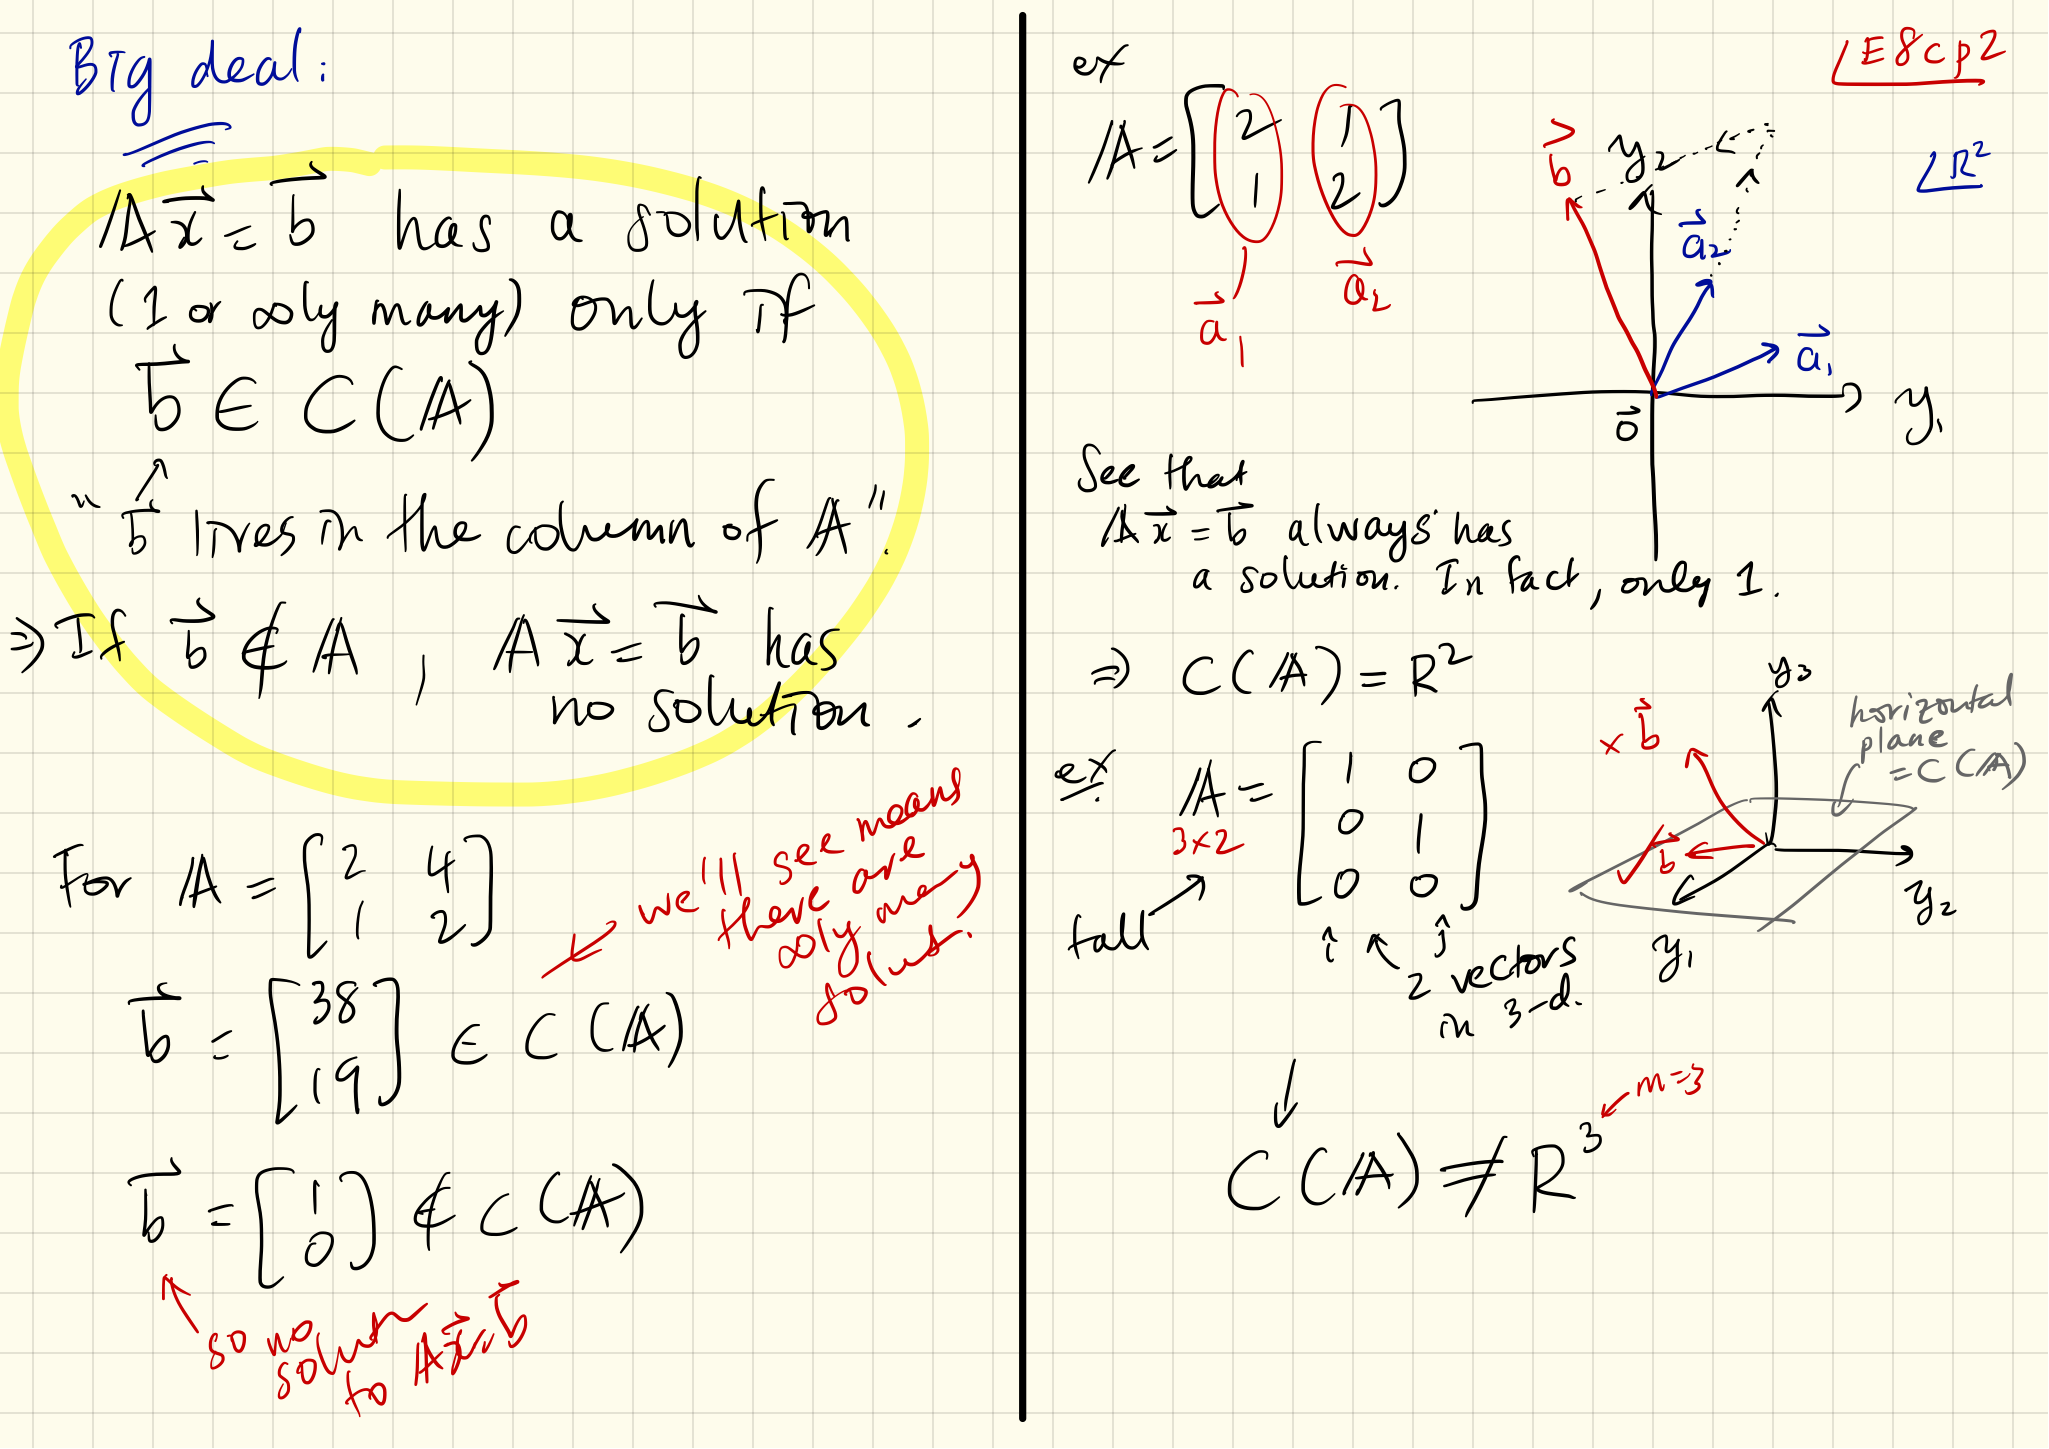 Big deal:
A x⃗ = b⃗ has a solution
(1 or ∞ly many) only if
b⃗ ∈ C(A)
"b⃗ lives in the column of A".
⇒ If b⃗ ∉ A, A x⃗ = b⃗ has
no solution.
For A = [2 4
1 2]
we'll see means
there are
∞ly many
solut.
b⃗ = [38
19] ∈ C(A)
b⃗ = [1
0] ∉ C(A)
so no
solut
to A x⃗ = b⃗
E8cp2
ex
A = [2 1
1 2]
a⃗1
a⃗2
b⃗
y2
R²
a⃗2
a⃗1
0⃗
y1
See that
A x⃗ = b⃗ always has
a solution. In fact, only 1.
⇒ C(A) = R²
ex
A = [1 0
0 1
0 0]
3x2
tall
î ĵ
2 vectors
in 3-d.
y3
horizontal
plane
= C(A)
x b⃗
✓ b⃗
y2
y1
C(A) ≠ R³
m=3